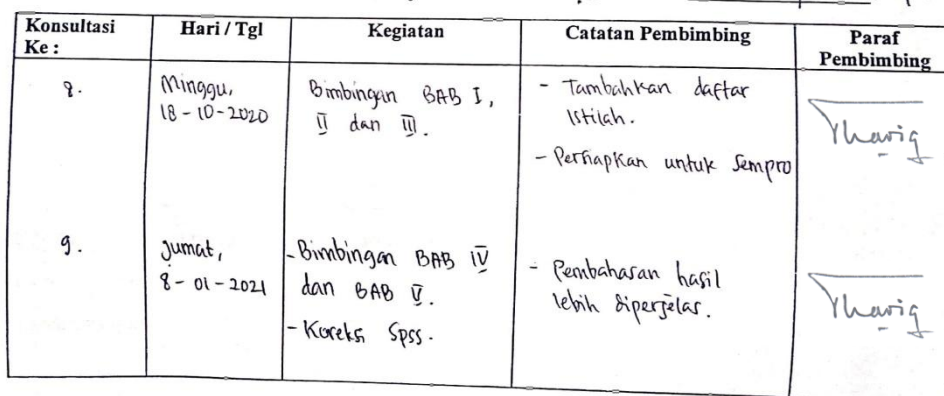 Konsultasi Ke :
Hari / Tgl
Kegiatan
Catatan Pembimbing
Paraf Pembimbing
8.
Minggu,
18 - 10 - 2020
Bimbingan BAB I,
II dan III.
- Tambahkan daftar
Istilah.
- Persiapkan untuk Sempro
Thariq
9.
Jumat,
8 - 01 - 2021
- Bimbingan BAB IV
dan BAB V.
- Koreksi Spss.
- Pembahasan hasil
lebih diperjelas.
Thariq